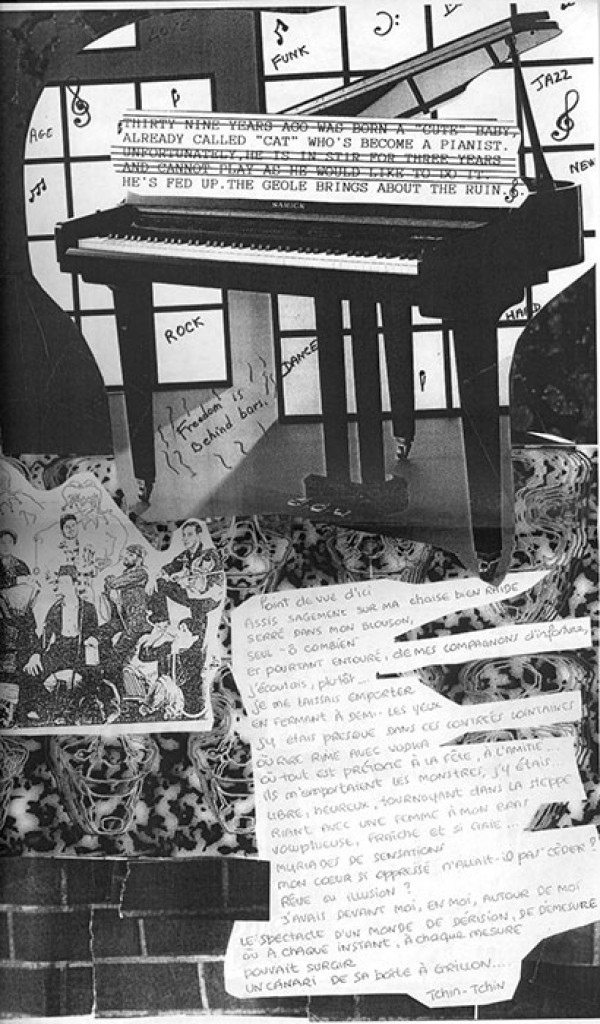 FUNK
JAZZ
AGE
NEW
THIRTY NINE YEARS AGO WAS BORN A "CUTE" BABY,
ALREADY CALLED "CAT" WHO'S BECOME A PIANIST.
UNFORTUNATELY, HE IS IN STIR FOR THREE YEARS
AND CANNOT PLAY AS HE WOULD LIKE TO DO IT.
HE'S FED UP.THE GEOLE BRINGS ABOUT THE RUIN.
SAMICK
ROCK
HARD
DANCE
Freedom is
Behind bars.
Point de vue d'ici
ASSIS SAGEMENT SUR MA chaise bien RAIDE
SERRÉ DANS MON BLOUSON,
SEUL - Ô COMBIEN
ET POURTANT ENTOURÉ, de MES COMPAGNONS d'infortune,
J'écoutais, plutôt...
Je me LAISSAIS EMPORTER
EN FERMANT À DEMI- LES YEUX
J'Y ÉTAIS PRESQUE DANS CES CONTRÉES LOINTAINES
OÙ RIRE RIME AVEC VODKA
OÙ TOUT EST PRÉTEXTE À LA FÊTE, À L'AMITIÉ...
Ils m'emportaient LES MONSTRES, J'Y ÉTAIS...
LIBRE, HEUREUX, TOURNOYANT DANS LA STEPPE
RIANT AVEC UNE FEMME À MON BRAS
VOLUPTUEUSE, FRAÎCHE ET SI GAIE...
MYRIADES DE SENSATIONS
MON COEUR SI OPPRESSÉ N'ALLAIT-il PAS CÉDER ?
RÊVE OU ILLUSION ?
J'AVAIS DEVANT MOI, EN MOI, AUTOUR DE MOI
LE SPECTACLE D'UN MONDE DE DÉRISION, DE DÉMESURE
OÙ À CHAQUE INSTANT, À CHAQUE MESURE
POUVAIT SURGIR
UN CANARI DE SA BOÎTE À GRILLON....
Tchin-Tchin